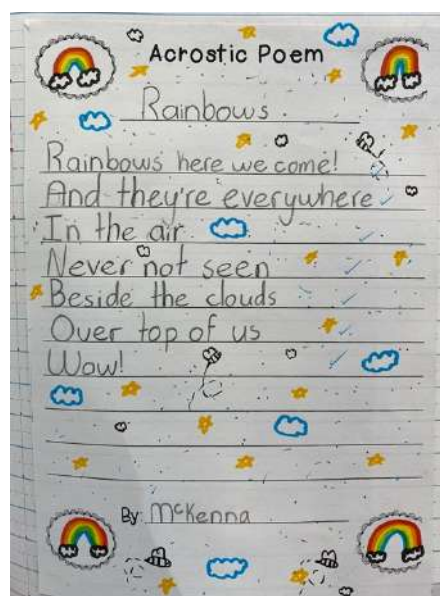 Acrostic Poem
Rainbows
Rainbows here we come!
And they're everywhere
In the air
Never not seen
Beside the clouds
Over top of us
Wow!
By: McKenna